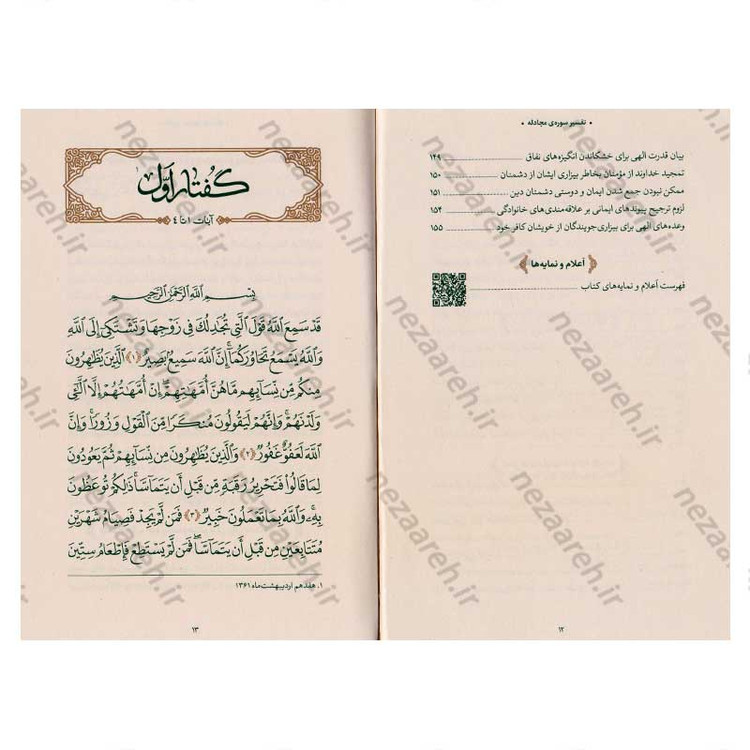 • تفسیر سوره‌ی مجادله •
بیان قدرت الهی برای خشکاندن انگیزه‌های نفاق ۱۴۹
تمجید خداوند از مؤمنان بخاطر بیزاری ایشان از دشمنان ۱۵۰
ممکن نبودن جمع شدن ایمان و دوستی دشمنان دین ۱۵۱
لزوم ترجیح پیوندهای ایمانی بر علاقه‌مندی‌های خانوادگی ۱۵۴
وعده‌های الهی برای بیزاری‌جویندگان از خویشان کافر خود ۱۵۵
اعلام و نمایه‌ها
فهرست اعلام و نمایه‌های کتاب
۱۲
گفتار اول
آیات ۱ تا ٤
بِسْمِ اللَّهِ الرَّحْمٰنِ الرَّحِيمِ
قَدْ سَمِعَ اللَّهُ قَوْلَ الَّتِي تُجَادِلُكَ فِي زَوْجِهَا وَتَشْتَكِي إِلَى اللَّهِ
وَاللَّهُ يَسْمَعُ تَحَاوُرَكُمَا إِنَّ اللَّهَ سَمِيعٌ بَصِيرٌ ﴿۱﴾ الَّذِينَ يُظَاهِرُونَ
مِنكُم مِّن نِّسَائِهِم مَّا هُنَّ أُمَّهَاتِهِمْ إِنْ أُمَّهَاتُهُمْ إِلَّا اللَّائِي
وَلَدْنَهُمْ وَإِنَّهُمْ لَيَقُولُونَ مُنكَرًا مِّنَ الْقَوْلِ وَزُورًا وَإِنَّ
اللَّهَ لَعَفُوٌّ غَفُورٌ ﴿۲﴾ وَالَّذِينَ يُظَاهِرُونَ مِن نِّسَائِهِمْ ثُمَّ يَعُودُونَ
لِمَا قَالُوا فَتَحْرِيرُ رَقَبَةٍ مِّن قَبْلِ أَن يَتَمَاسَّا ذَٰلِكُمْ تُوعَظُونَ
بِهِ وَاللَّهُ بِمَا تَعْمَلُونَ خَبِيرٌ ﴿۳﴾ فَمَن لَّمْ يَجِدْ فَصِيَامُ شَهْرَيْنِ
مُتَتَابِعَيْنِ مِن قَبْلِ أَن يَتَمَاسَّا فَمَن لَّمْ يَسْتَطِعْ فَإِطْعَامُ سِتِّينَ
۱. هفدهم اردیبهشت‌ماه ۱۳۶۱
۱۳
nezaareh.ir